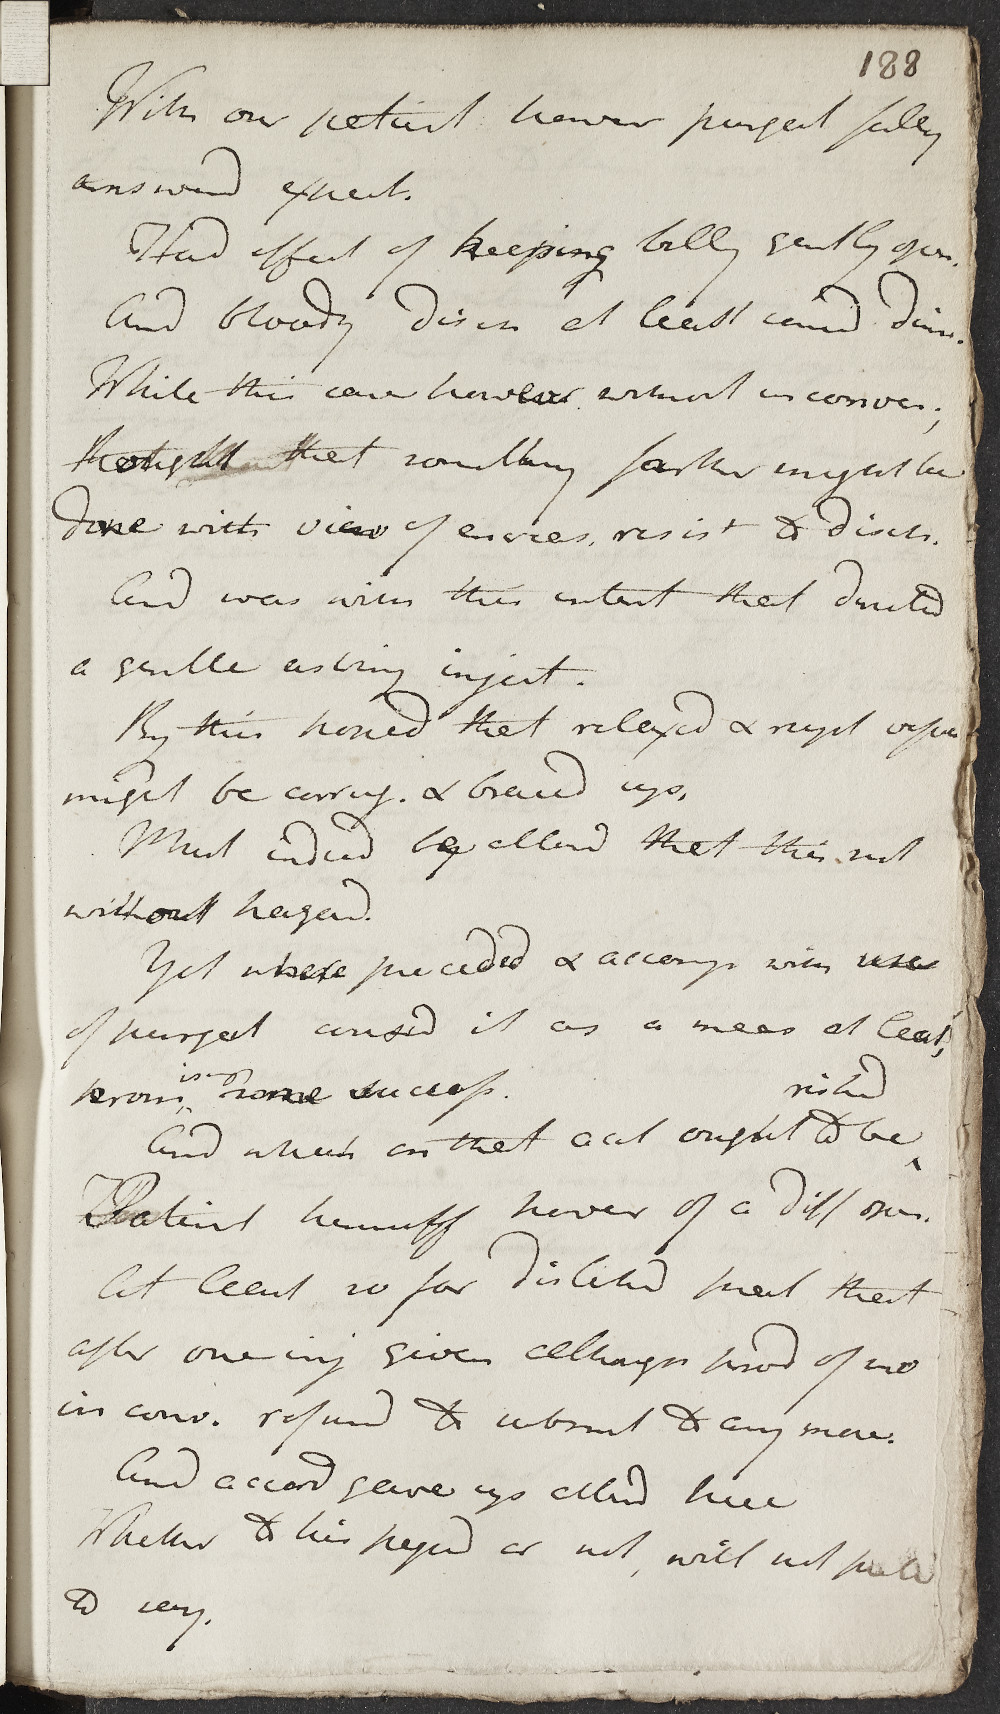 188
With our patient howr purgat fully
answerd expect.
Had effect of keeping belly gently open.
And bloody disch at least considd dimi.
While this case however without inconven;
thought that something farther might be
done with view of encreas. resist to disch.
And was with this intent that directed
a gentle astring inject.
By this hoped that relaxed & rupt vessels
might be corrug. & braced up.
Must indeed be allowd that this not
without hazard.
Yet where preceded & accomp with use
of purgat consid it as a meas at least,
promising some success.
And which on that acct ought to be risked
Patient himself howev of a diff opin.
At least so far disliked pract that
after one inj given although prod of no
inconv. refused to submit to any more.
And accord gave up attend here
Whether to his prejud or not, will not pretd
to say.